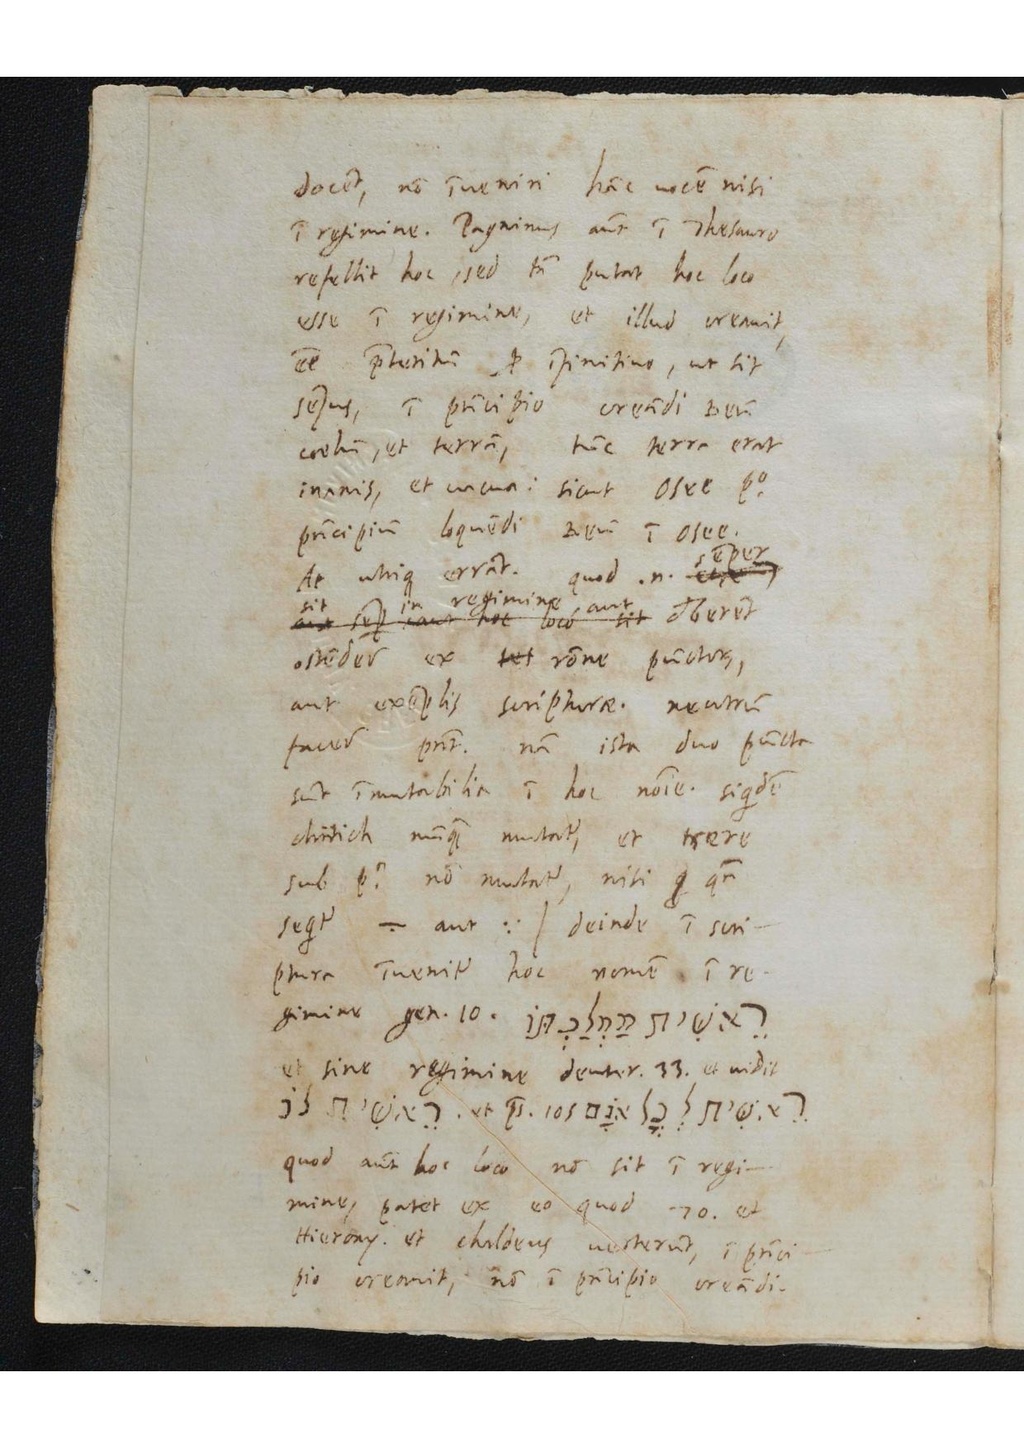 docēt, nō īueniri hāc uocē nisi
ī regimine. Pagninus aūt ī Thesauro
refellit hoc, sed tn̄ putat hoc loco
esse ī regimine, et illud creauit,
eē p̄teritū ꝓ īfinitiuo, ut sit
sēsus, ī prīcipio creādi Deū
coelū, et terrā, tūc terra erat
inanis, et uacua: sicut Osee pº.
prīcipiū loquēdi Deū ī Osee.
At utiq errāt. quod .n. sēper
sit in regimine, aut
hoc loco sit dēberēt
ostēder̄ ex rōne pūctor̄,
aut exēplis scripturæ. neutrū
facer̄ pn̄t. nā ista duo pūcta
sūt īmutabilia ī hoc noīe. siqdē
chirich nūq̄ mutat̄, et tsere
sub pº. nō mutat̄, nisi qn̄
seqt̄ aut deinde ī scri-
ptura īuenit̄ hoc nomē ī re-
gimine gen. 10. רֵאשִׁית מַמְלַכְתּוֹ
et sine regimine deuter. 33. et uidit
רֵאשִׁית לוֹ. et ps. 105 רֵאשִׁית לְכָל אוֹנָם
quod aūt hoc loco nō sit ī regi-
mine, patet ex eo quod 70. et
Hierony. et chaldeus uerterūt, ī prīci-
pio creauit, nō ī prīcipio creādi.